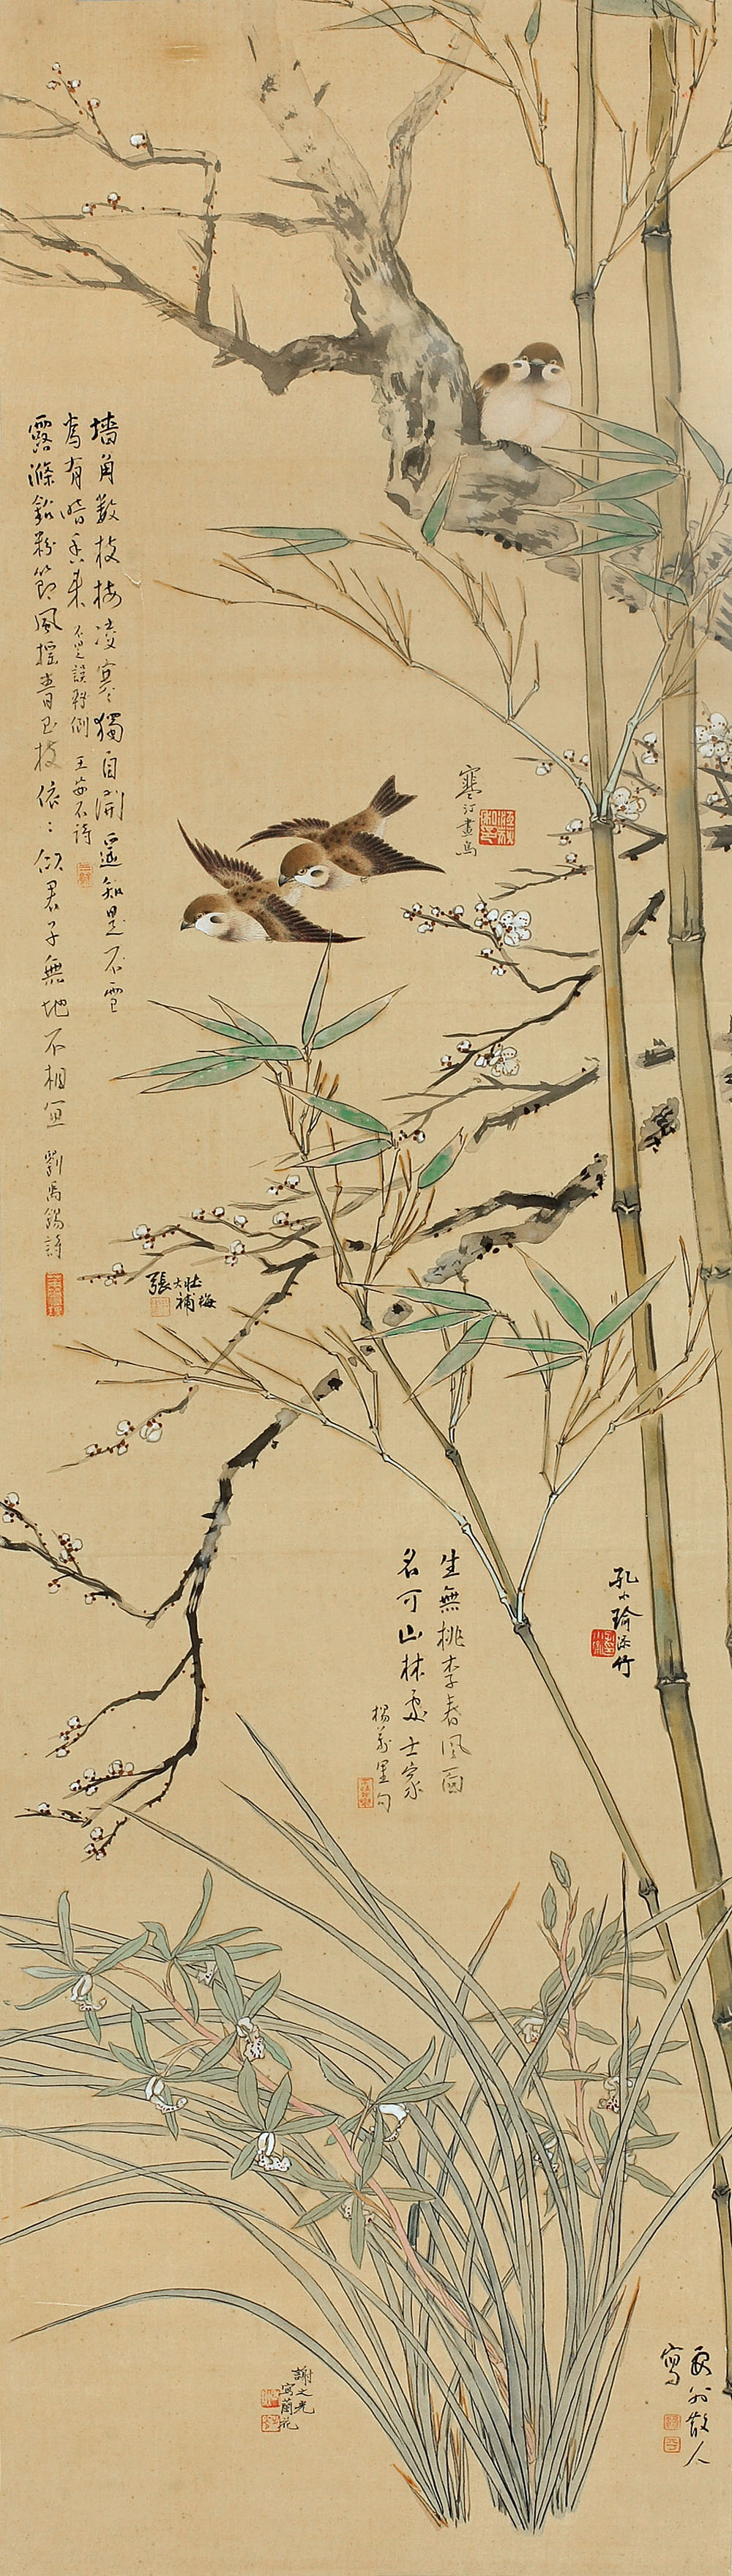 墻角數枝梅凌寒獨自開遥知是不雪
為有暗香来 不是誤特倒 王安石詩
露滌鉛粉節風摇青玉枝依：似君子無地不相宜 劉禹錫詩
寒汀畫鳥
張大壯
補梅
生無桃李春風面
名可山林處士家
楊萬里句
孔小瑜添竹
謝之光
寫蘭花
散人
寫